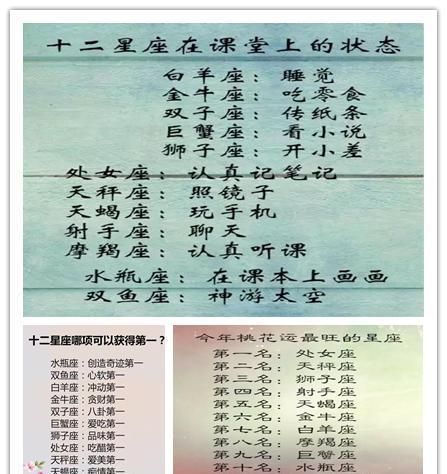 十二星座在课堂上的状态
白羊座：睡觉
金牛座：吃零食
双子座：传纸条
巨蟹座：看小说
狮子座：开小差
处女座：认真记笔记
天秤座：照镜子
天蝎座：玩手机
射手座：聊天
摩羯座：认真听课
水瓶座：在课本上画画
双鱼座：神游太空
十二星座哪项可以获得第一？
水瓶座：创造奇迹第一
双鱼座：心软第一
白羊座：冲动第一
金牛座：贪财第一
双子座：八卦第一
巨蟹座：爱吃第一
狮子座：品味第一
处女座：吃醋第一
天秤座：爱美第一
天蝎座：痴情第一
今年桃花运最旺的星座
第一名：处女座
第二名：天秤座
第三名：狮子座
第四名：射手座
第五名：天蝎座
第六名：金牛座
第七名：白羊座
第八名：摩羯座
第九名：巨蟹座
第十名：水瓶座